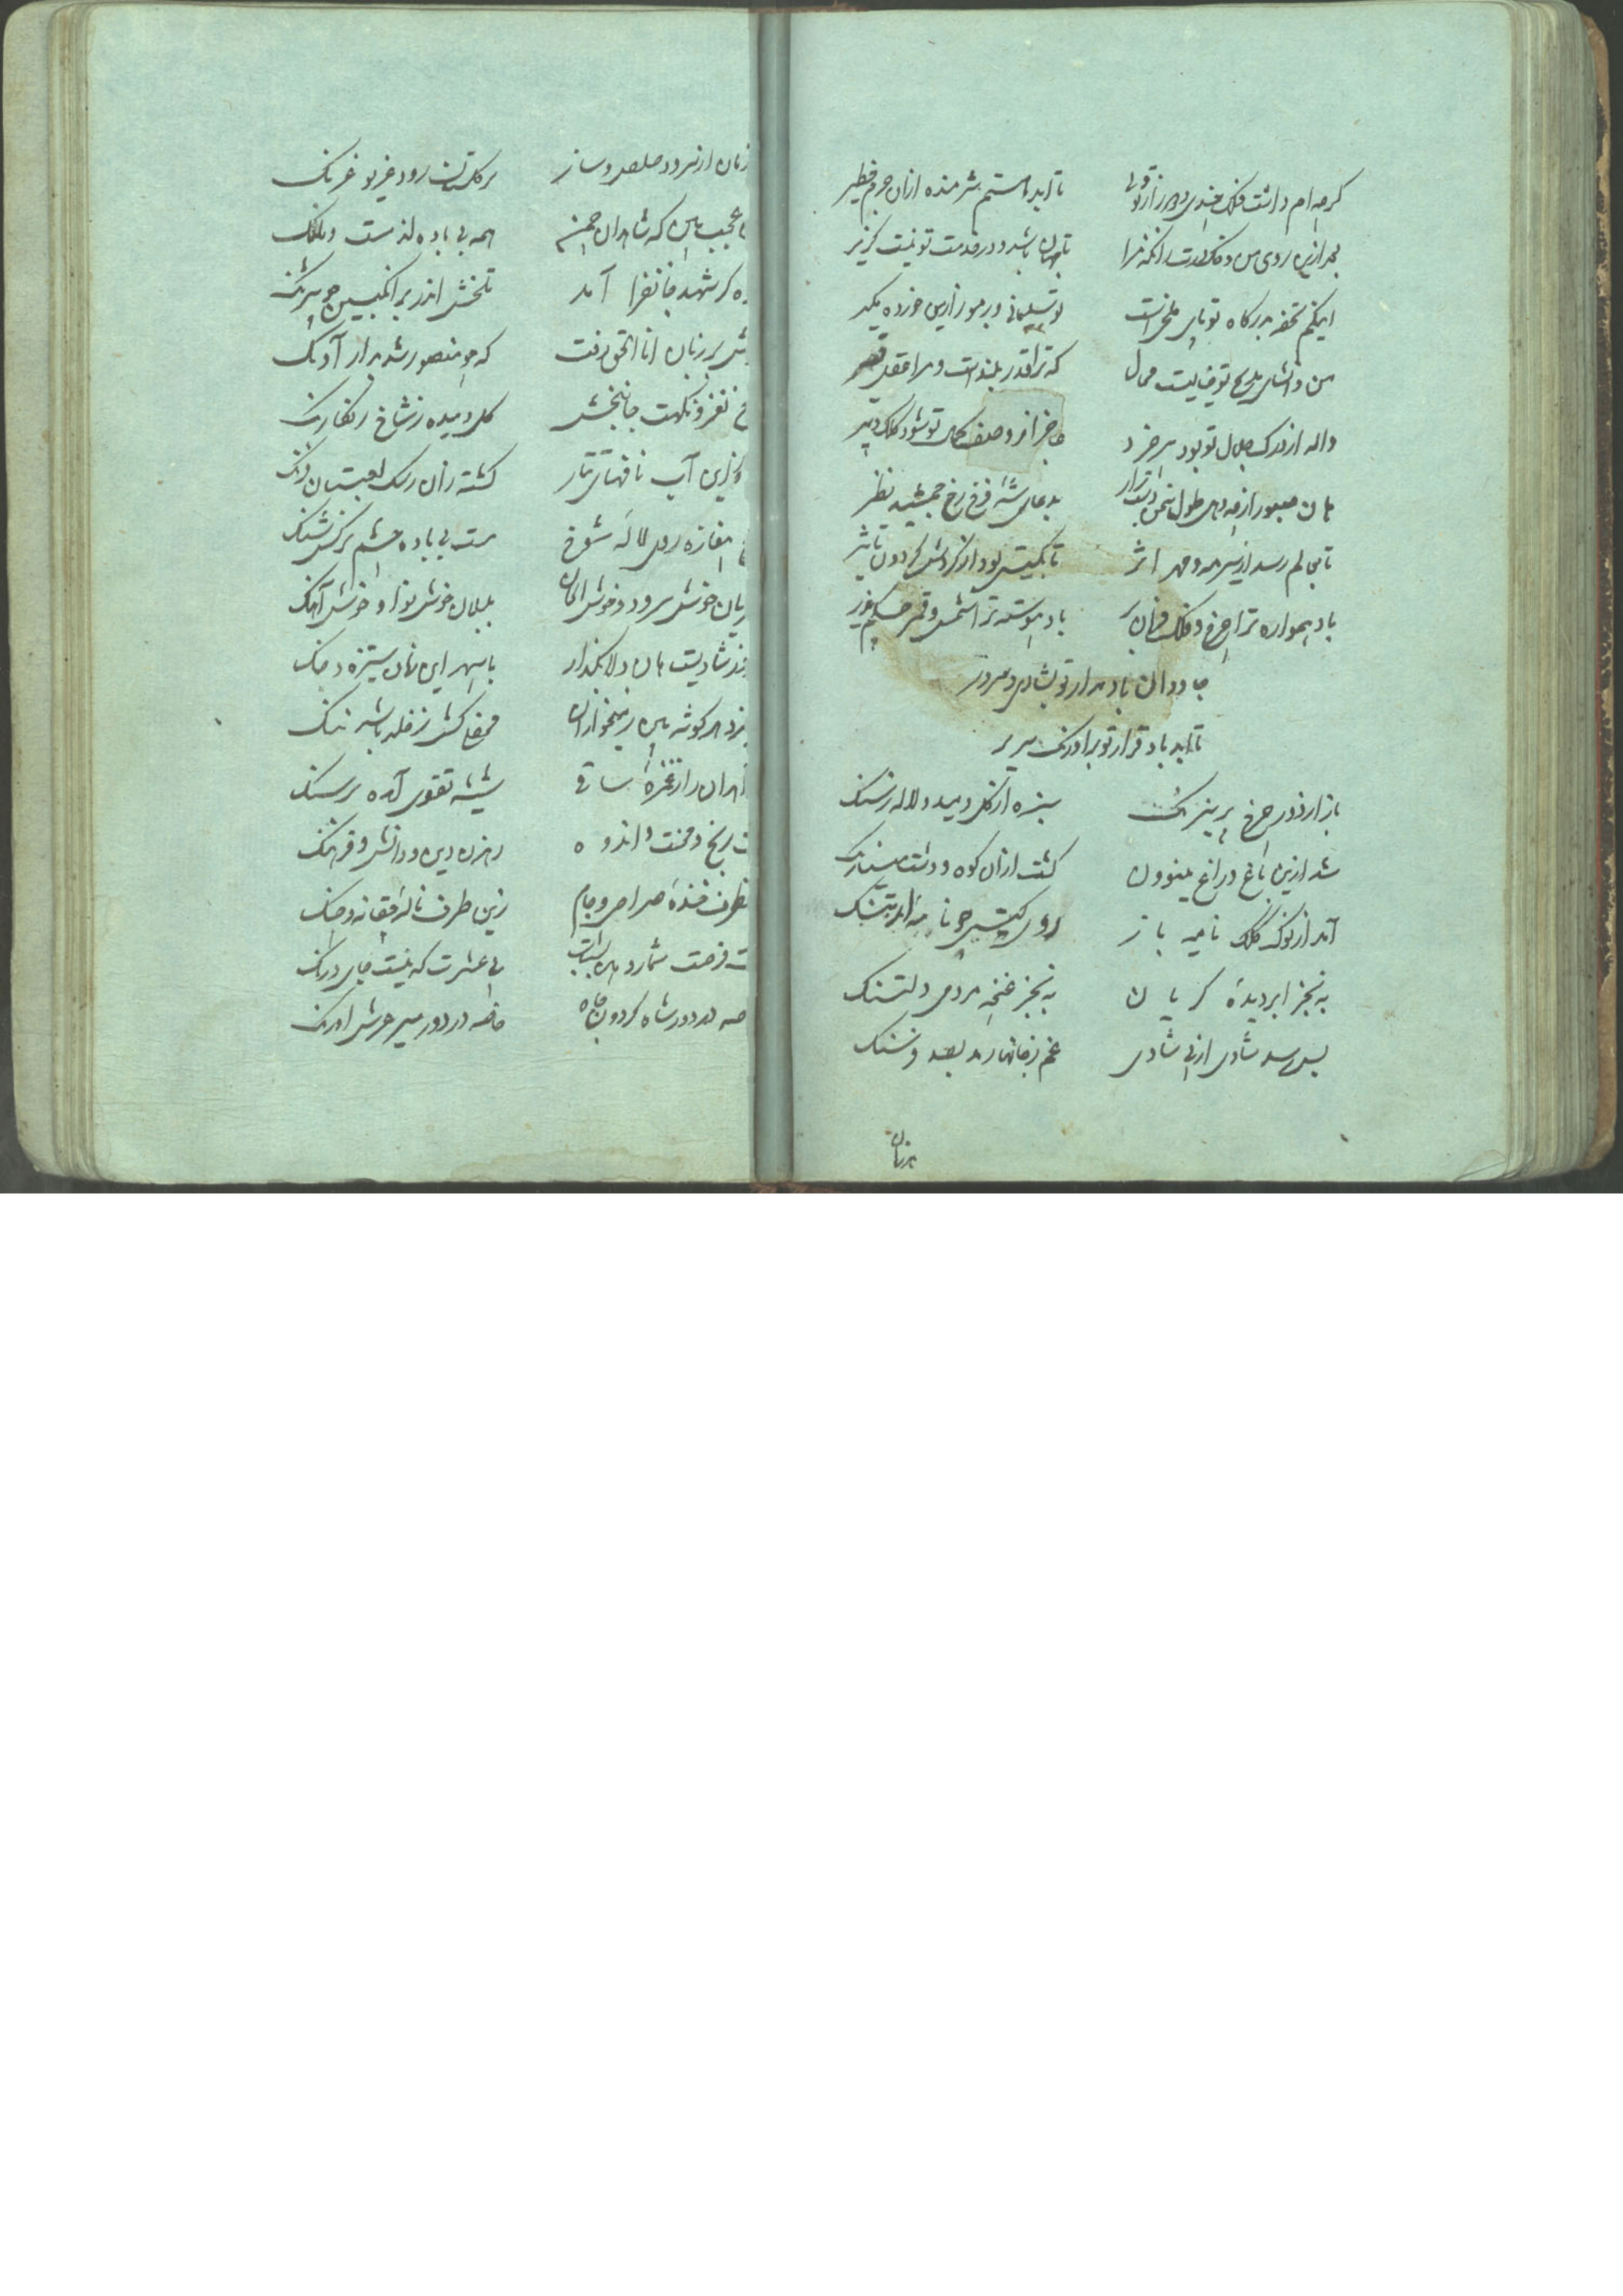 کرچه ام داشت فلک چندی دور از تو ولی
تا ابد هستم شرمنده ازان جرم خطیر
بعد ازین روی من و خاک درت زانکه مرا
تا جهان باشد و در خدمت تو نیست کزیر
اینکم تحفه بدرکاه تو پای ملخ است
تو سلیمانی و بر مور ازین خورده مکیر
من و انشای مدیح تو خیالیست محال
که ترا قدر بلند است و مرا عقل قصیر
واله از درک جلال تو بود سر خرد
عاجز از وصف کمال تو شود کلک دبیر
هان صبور از چه دهی طول سخن دست برار
بدعای شه فرخ رخ جمشید نظر
تا بعالم رسد از سیر مه و مهر اثر
تا بکیتی بود از کردش کردون تاثیر
باد همواره ترا چرخ و فلک فرمان بر
باد پیوسته ترا شمس و قمر حکم پذیر
جاودان باد مدار تو بشادی و سرور
تا ابد باد قرار تو بر اورنک سریر
باز از دور چرخ پر نیرنک
سبزه از کل دمید و لاله ز سنک
شد ازین باغ و راغ مینوون
کشت ازان کوه و دشت مینارنک
آمد از نوک کلک نامیه باز
روی کیتی چو نامه ارتنک
به نجز ابر دیده کریان
به نجز غنچه مردمی دلتنک
بس رسد شادی از پی شادی
غم ز جانها رمد بصد فرسنک
بر زمان
زمان از سرود صلصل و ساز
بر کلستان رود غریو غرنک
عجب بین که شاهدان چمن
همه بی باده اند مست و ملنک
که شهد جانفزا آمد
تلخش اندر بر انکبین چو شرنک
بر زبان انا الحق رفت
که چو منصور شد بدار آونک
نغز و نکهت جانبخش
کل دمیده ز شاخ رنکارنک
آب نافهای تتار
کشته زان رشک لعبتان فرنک
بیغازه روی لاله شوخ
مست بی باده چشم نرکس شنک
خوش سرود و خوش الحان
بلبلان خوش نوا و خوش آهنک
شادیست هان دلا بکذار
با سپهر این زمان ستیزه و جنک
هر کوشه بین ز میخواران
محفل کش ز خلد باشد ننک
زاهدان را ز غمزه ساقی
شیشه تقوی آمده بر سنک
رنج و محنت و اندوه
رهزن دین و دانش و فرهنک
طرف خنده صراحی و جام
زین طرف ناله چغانه و چنک
فرصت شمار و هین بشتاب
پی عشرت که نیست جای درنک
خاصه در دور شاه کردون جاه
خاصه در دور میر عرش اورنک